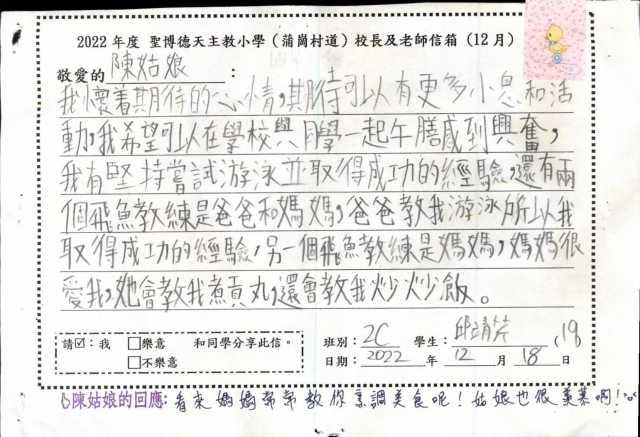 2022 年度 聖博德天主教小學（蒲崗村道）校長及老師信箱（12月）
敬愛的 陳姑娘 ：
我懷着期待的心情，期待可以有更多小息和活
動，我希望可以在學校與同學一起午膳感到興奮，
我有堅持嘗試游泳並取得成功的經驗，還有兩
個飛魚教練是爸爸和媽媽，爸爸教我游泳所以我
取得成功的經驗，另一個飛魚教練是媽媽，媽媽很
愛我，她會教我煮貢丸，還會教我炒炒飯。
請☑：我 □樂意 和同學分享此信。 班別： 2C 學生： 邱靖芹 (19)
□不樂意 日期： 2022 年 12 月 18 日
陳姑娘的回應: 看來媽媽常常教你烹調美食呢！姑娘也很羨慕啊！